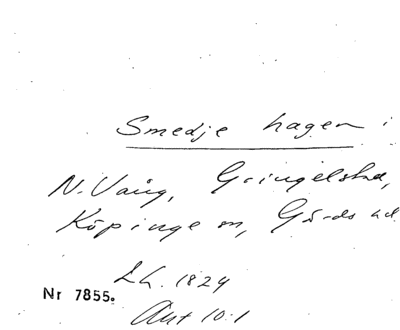 Smedje hagen i
N. Vång, Gringelstad,
Köpinge sn, Gärds hd
Lh. 1824
Nr 7855.
Akt 10:1